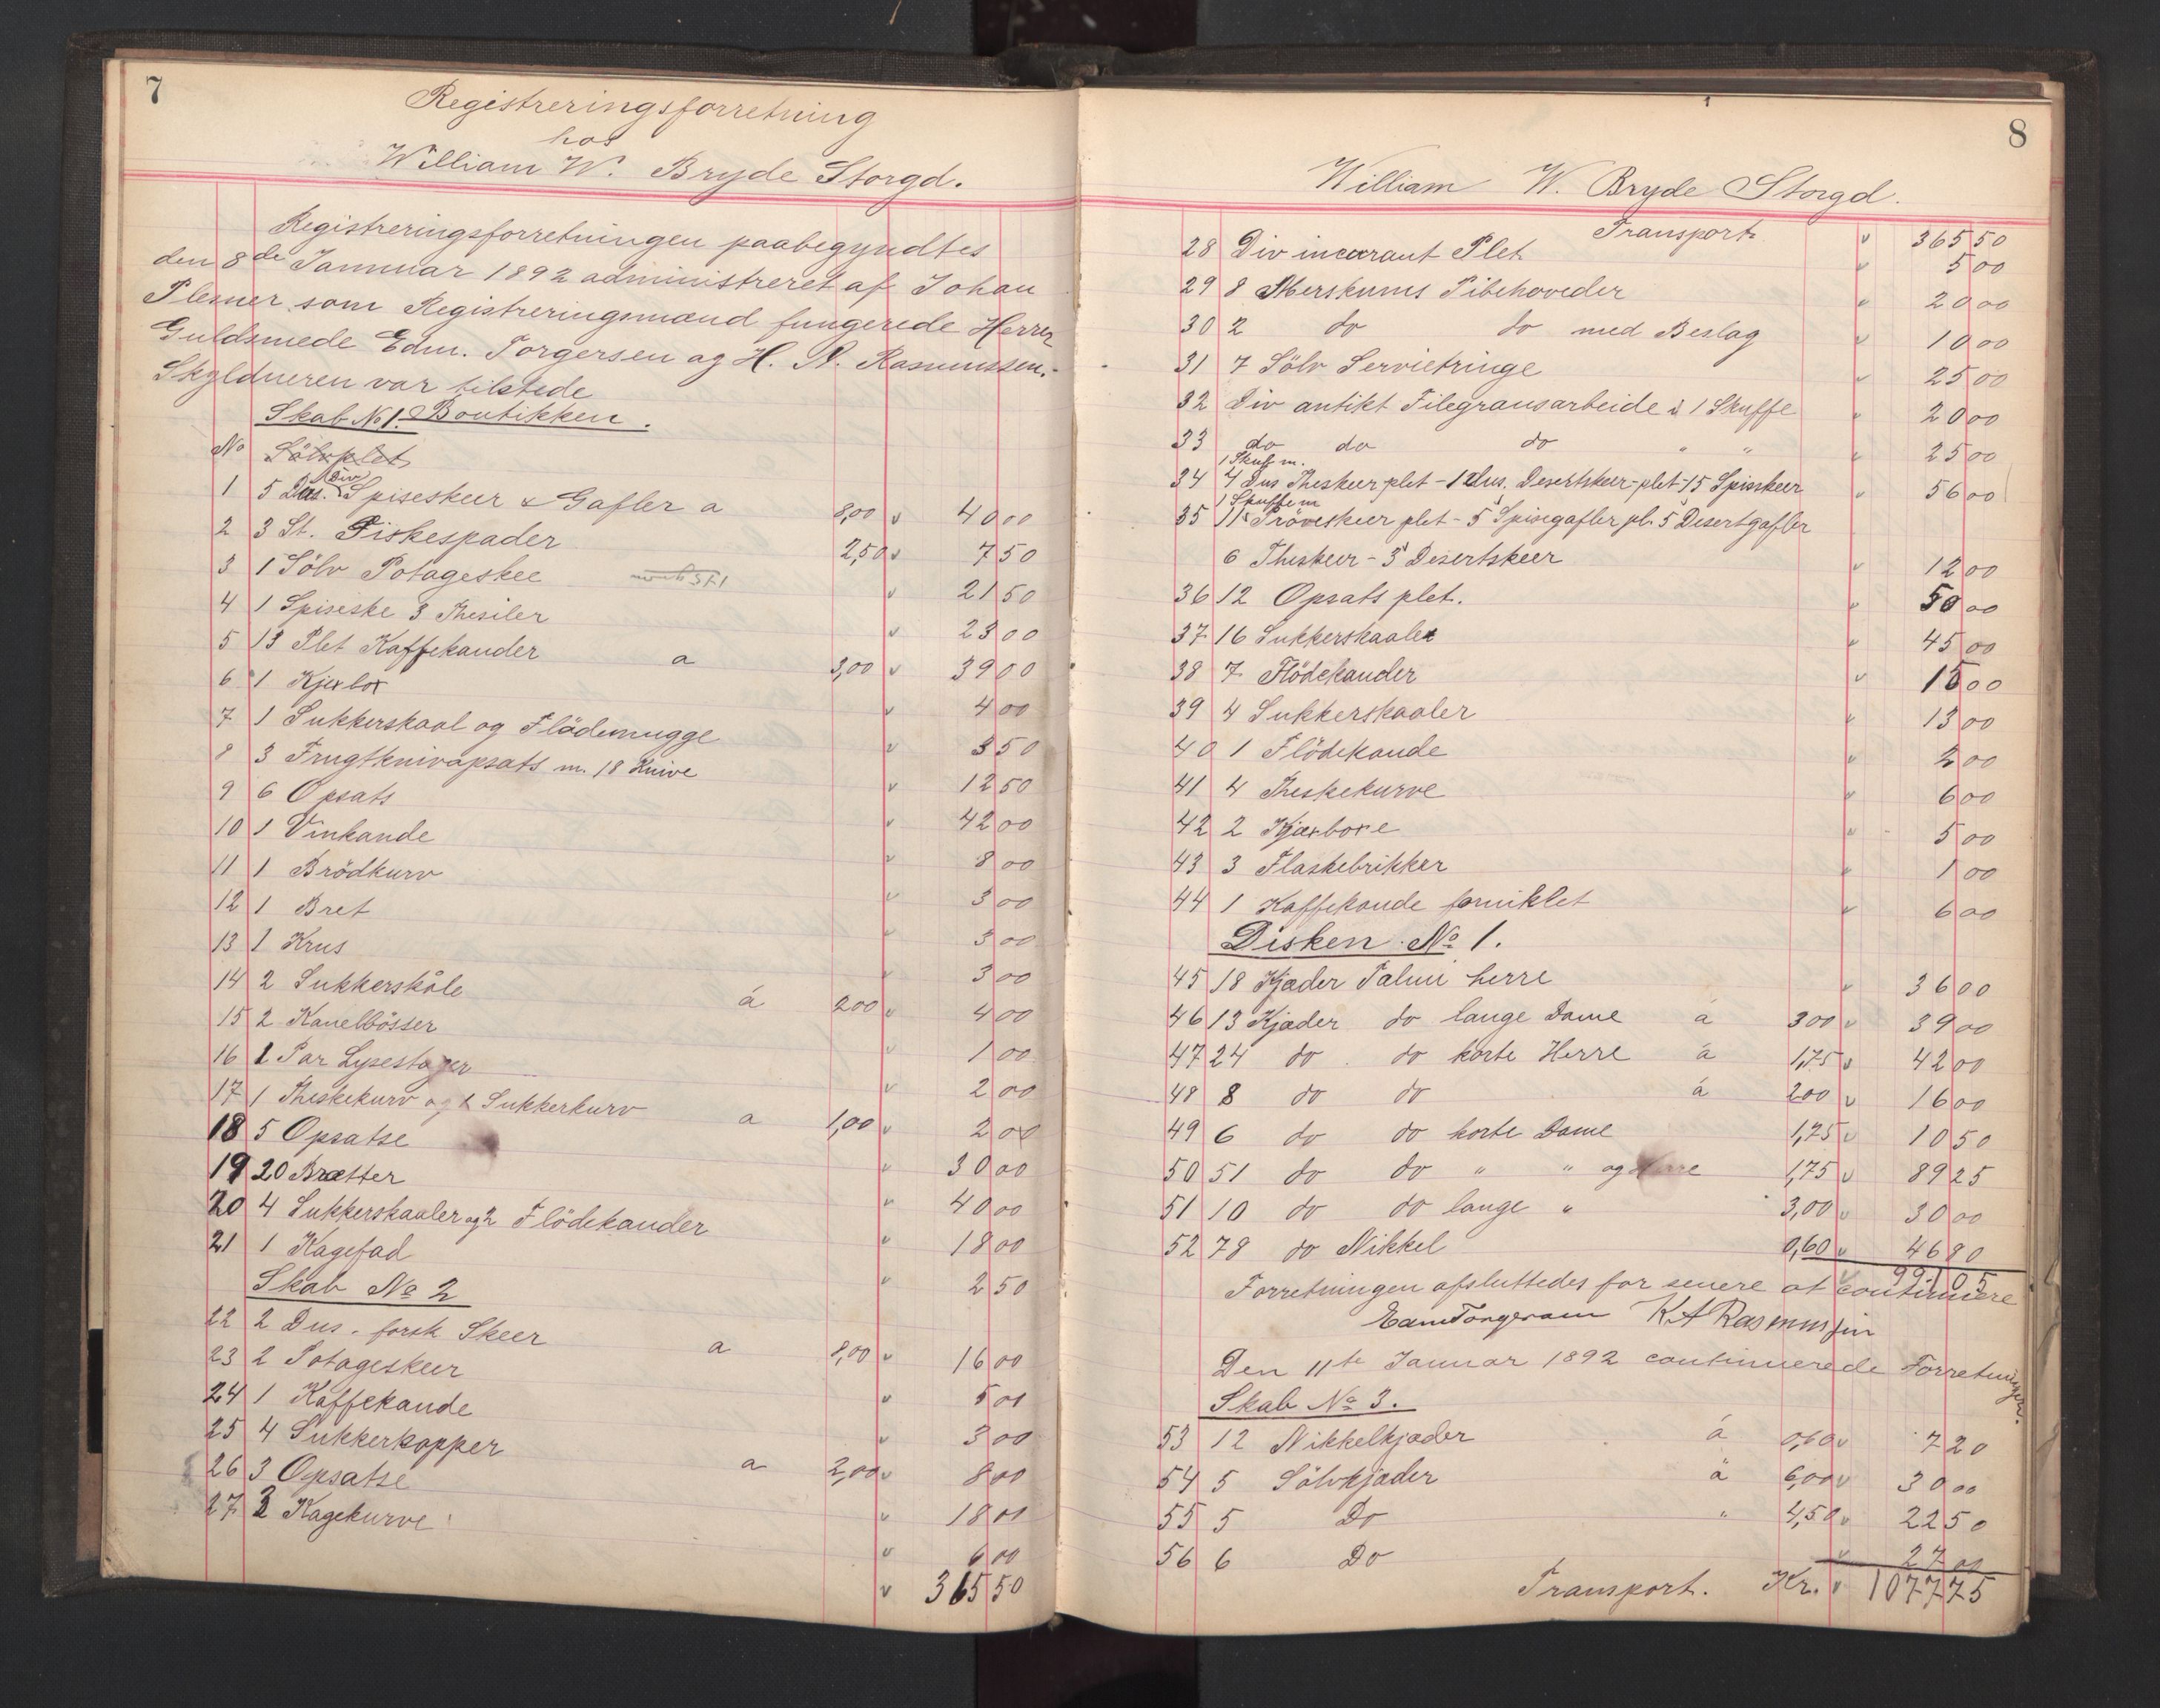 7
Registreringsforretning
hos
William W. Bryde Storgd.
Registreringsforretningen paabegyndtes
den 8de Januar 1892 administreret af Johan
Plesner som Registreringsmænd fungerede Herrer
Guldsmede Edm. Torgersen og H. A. Rasmussen.
Skyldneren var tilstede
Skab No 1. Boutikken.
No Sölvplet
1 5 Dus. Div Spiseskeer & Gafler a 8,00 " 40 00
2 3 St. Fiskespader 2,50 " 7 50
3 1 Sölv Potageskee " 21 50
4 1 Spiseske 3 Thesiler " 23 00
5 13 Plet Kaffekander a 3,00 " 39 00
6 1 Kjexbox " 4 00
7 1 Sukkerskaal og Flödemugge " 3 50
8 3 Frugtknivopsats m. 18 Knive " 12 50
9 6 Opsats " 42 00
10 1 Vinkande " 8 00
11 1 Brödkurv " 3 00
12 1 Bret " 3 00
13 1 Krus " 3 00
14 2 Sukkerskåle á 200 " 4 00
15 2 Kanelbösser " 1 00
16 1 Par Lysestager " 2 00
17 1 Theskekurv og 1 Sukkerkurv a 1,00 " 2 00
18 5 Opsatse " 30 00
19 20 Brætter " 40 00
20 4 Sukkerskaaler og 2 Flödekander " 18 00
21 1 Kagefad " 2 50
Skab No 2
22 2 Dus. forsk Skeer a 8,00 " 16 00
23 2 Potageskeer " 5 00
24 1 Kaffekande " 3 00
25 4 Sukkerkopper a 2,00 " 8 00
26 3 Opsatse " 18 00
27 3 Kagekurve " 6 00
" 365 50
8
William W. Bryde Storgd.
Transport " 365 50
28 Div incurant Plet " 5 00
29 8 Merskums Pibehoveder " 20 00
30 2 do do med Beslag " 10 00
31 7 Sölv Servietringe " 25 00
32 Div antikt Filegransarbeide i 1 Skuffe " 20 00
33 do do do " " " 25 00
1 Skuf m.
34 4 Dus Theskeer plet - 1 Dus. Desertskeer-plet - 15 Spiseskeer " 56 00
1 Skuffe m
35 11 Pröveskeer plet - 5 Spisegafler pl. 5 Desertgafler
6 Theskeer - 3 Desertskeer " 12 00
36 12 Opsats plet. " 50 00
37 16 Sukkerskaaler " 45 00
38 7 Flödekander " 15 00
39 4 Sukkerskaaler " 13 00
40 1 Flödekande " 2 00
41 4 Theskekurve " 6 00
42 2 Kjæxboxe " 5 00
43 3 Flaskebrikker " 1 00
44 1 Kaffekande forniklet " 6 00
Disken No 1.
45 18 Kjæder Talmi herre " 36 00
46 13 Kjæder do lange Dame á 300 " 39 00
47 24 do do korte Herre á 1,75 " 42 00
48 8 do do á 200 " 16 00
49 6 do do korte Dame 1,75 " 10 50
50 51 do do " " og Herre 1,75 " 89 25
51 10 do do lange " 3,00 " 30 00
52 78 do Nikkel 0,60 " 46 80
991 05
Forretningen afsluttedes for senere at continuere
Edm Torgersen K A Rasmussen
Den 11te Januar 1892 continuerede Forretningen.
Skab No 3.
53 12 Nikkelkjæder á 0,60 " 7 20
54 5 Sölvkjæder a 6,00 " 30 00
55 5 Do " 4,50 " 22 50
56 6 Do " 27 00
Transport. Kr. " 1077 75